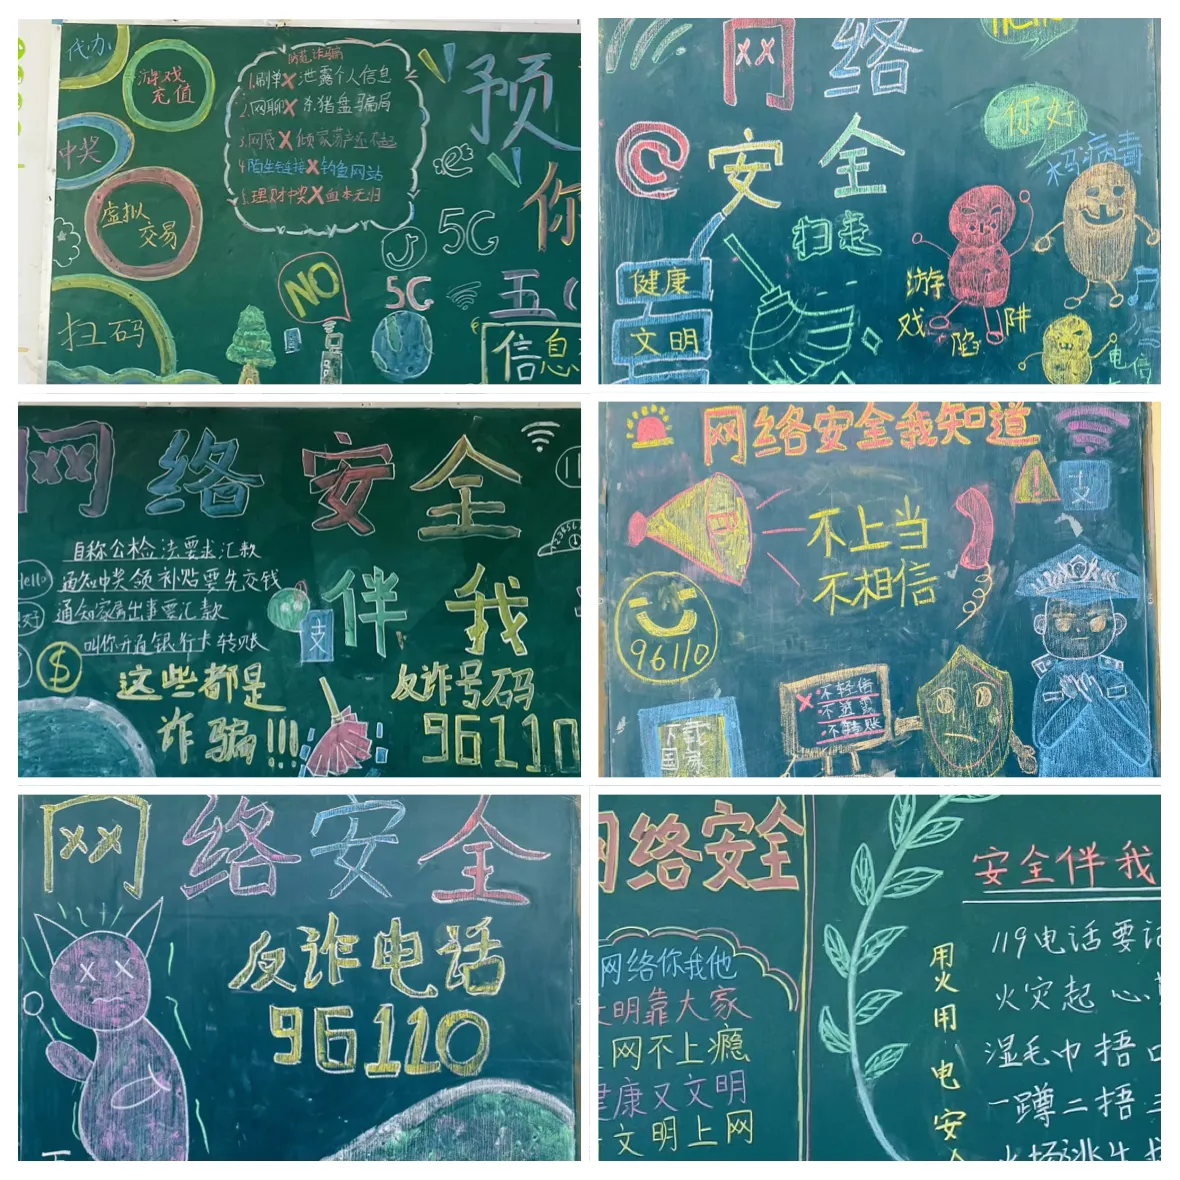 代办
游戏
充值
中奖
虚拟
交易
扫码
防范诈骗
1.刷单X泄露个人信息
2.网聊X杀猪盘骗局
3.网贷X倾家荡产还不起
4.陌生链接X钓鱼网站
5.理财中奖X血本无归
预
你
e
5G
NO
5G
五
信息
网络
安全
健康
文明
扫走
你好
木马病毒
游
戏
陷
阱
电信
网络安全
自称公检法要求汇款
通知中奖领补贴要先交钱
通知家属出事要汇款
叫你开通银行卡转账
这些都是
诈骗!!!
Hello
好
$
伴我
支
反诈号码
96110
网络安全我知道
不上当
不相信
支
96110
不轻信
不透露
不转账
下载
国家
网络安全
反诈电话
96110
网络安全
网络你我他
文明靠大家
网不上瘾
健康又文明
文明上网
安全伴我
用火用电安
119电话要记
火灾起心
湿毛巾捂口
一蹲二捂三
火场逃生